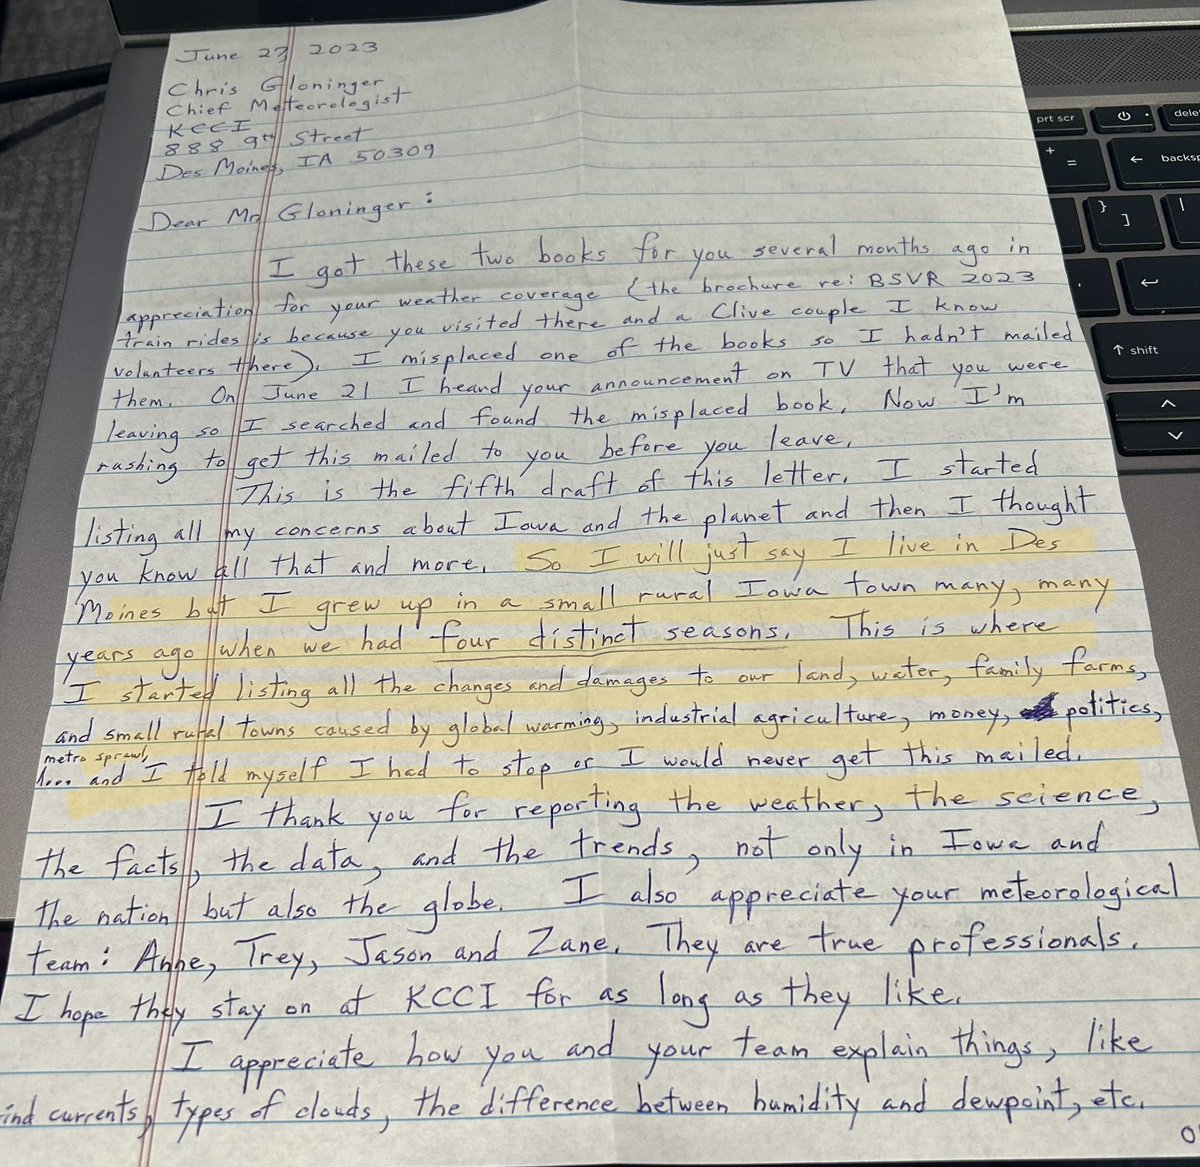 June 27, 2023
Chris Gloninger
Chief Meteorologist
KCCI
888 9th Street
Des Moines, IA 50309
Dear Mr. Gloninger:
I got these two books for you several months ago in
appreciation for your weather coverage (the brochure re: BSVR 2023
train rides is because you visited there and a Clive couple I know
volunteers there). I misplaced one of the books so I hadn't mailed
them. On June 21 I heard your announcement on TV that you were
leaving so I searched and found the misplaced book. Now I'm
rushing to get this mailed to you before you leave.
This is the fifth draft of this letter. I started
listing all my concerns about Iowa and the planet and then I thought
you know all that and more. So I will just say I live in Des
Moines but I grew up in a small rural Iowa town many, many
years ago when we had four distinct seasons. This is where
I started listing all the changes and damages to our land, water, family farms,
and small rural towns caused by global warming, industrial agriculture, money, politics,
metro sprawl,
... and I told myself I had to stop or I would never get this mailed.
I thank you for reporting the weather, the science,
the facts, the data, and the trends, not only in Iowa and
the nation but also the globe. I also appreciate your meteorological
team: Anne, Trey, Jason and Zane. They are true professionals.
I hope they stay on at KCCI for as long as they like.
I appreciate how you and your team explain things, like
ind currents, types of clouds, the difference between humidity and dewpoint, etc.
prt scr
dele
+
=
←
backsp
}
]
|
↑ shift